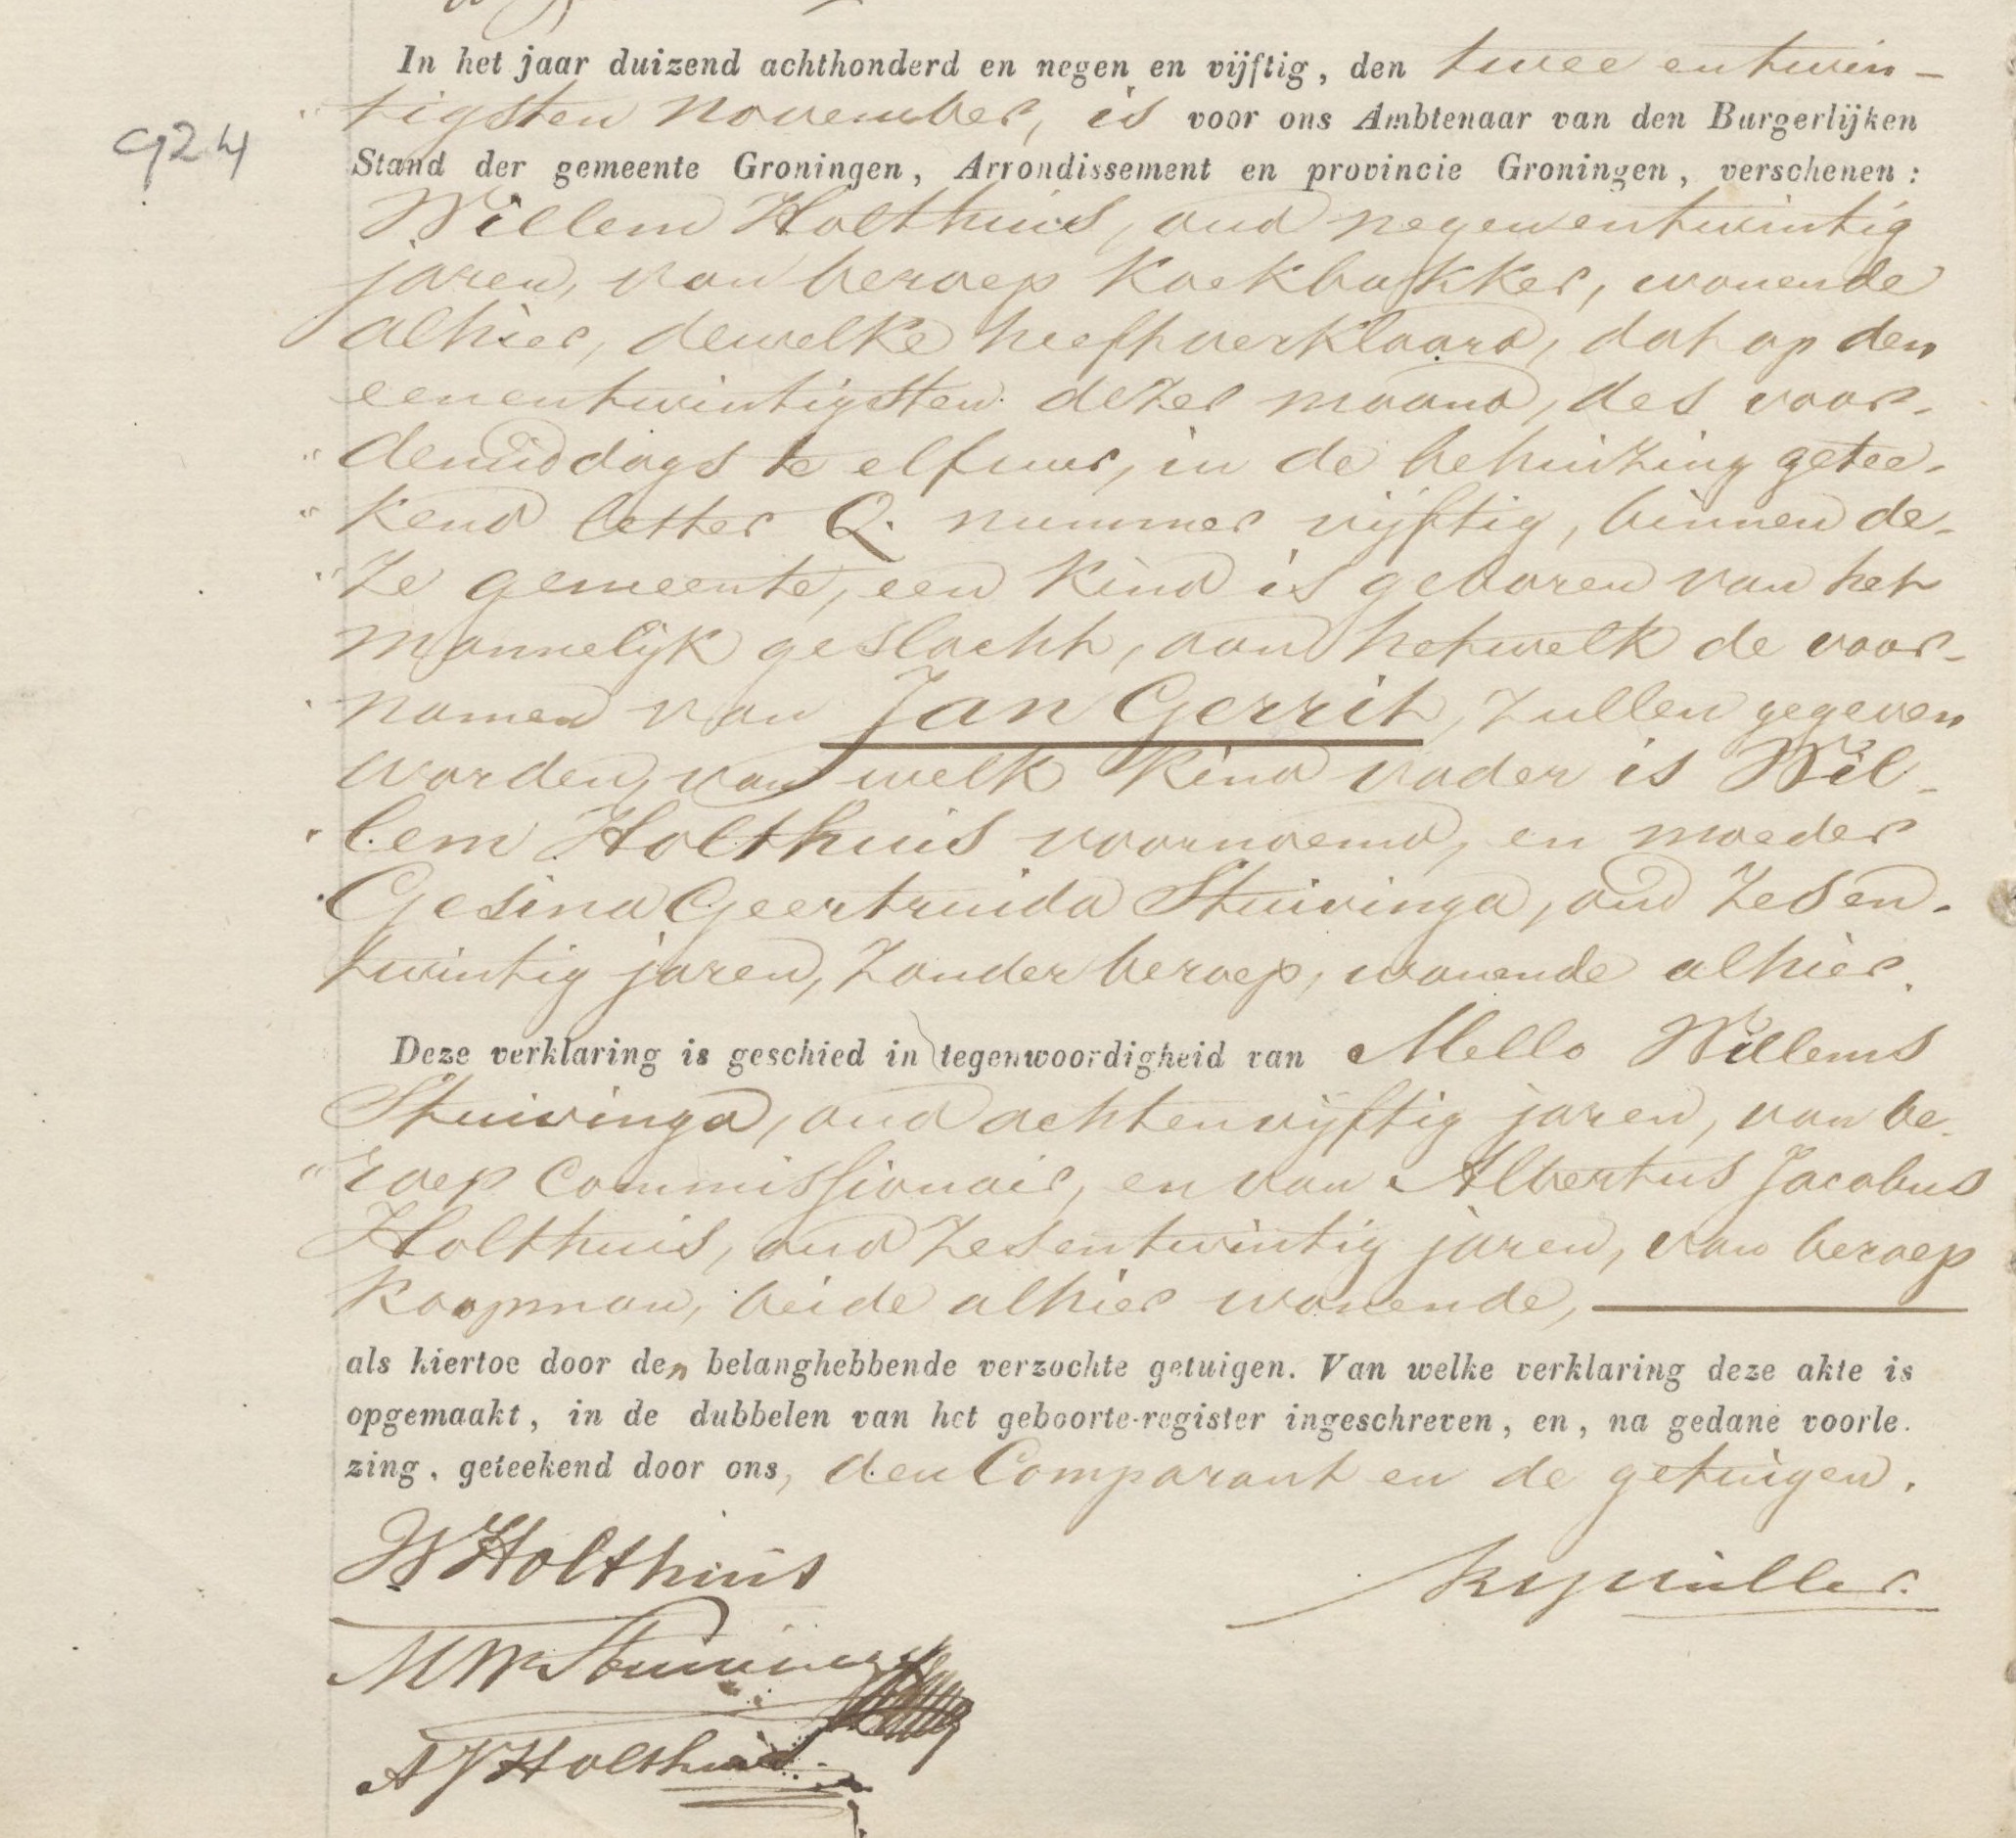 In het jaar duizend achthonderd en negen en vijftig, den twee entwin-
" tigsten November, is voor ons Ambtenaar van den Burgerlijken
924
Stand der gemeente Groningen, Arrondissement en provincie Groningen, verschenen:
Willem Holthuis, oud negenentwintig
jaren, van beroep koekbakker, wonende
alhier, dewelke heeft verklaard, dat op den
eenentwintigsten dezer maand, des voor-
" demiddags te elf uur, in de behuizing getee-
" kend letter Q. nummer vijftig, binnen de-
" ze gemeente, een kind is geboren van het
mannelijk geslacht, aan hetwelk de voor-
namen van Jan Gerrit, zullen gegeven
worden, van welk kind vader is Wil-
" lem Holthuis voornoemd, en moeder
Gesina Geertruida Stuivinga, oud zesen-
twintig jaren, zonder beroep, wonende alhier.
Deze verklaring is geschied in tegenwoordigheid van Mello Willems
Stuivinga, oud achtenvijftig jaren, van be-
" roep Commissionair, en van Albertus Jacobus
Holthuis, oud zesentwintig jaren, van beroep
koopman, beide alhier wonende,
als hiertoe door den belanghebbende verzochte getuigen. Van welke verklaring deze akte is
opgemaakt, in de dubbelen van het geboorte-register ingeschreven, en, na gedane voorle.
zing, geteekend door ons, den Comparant en de getuigen.
W Holthuis
MWs Stuivinga
A J Holthuis